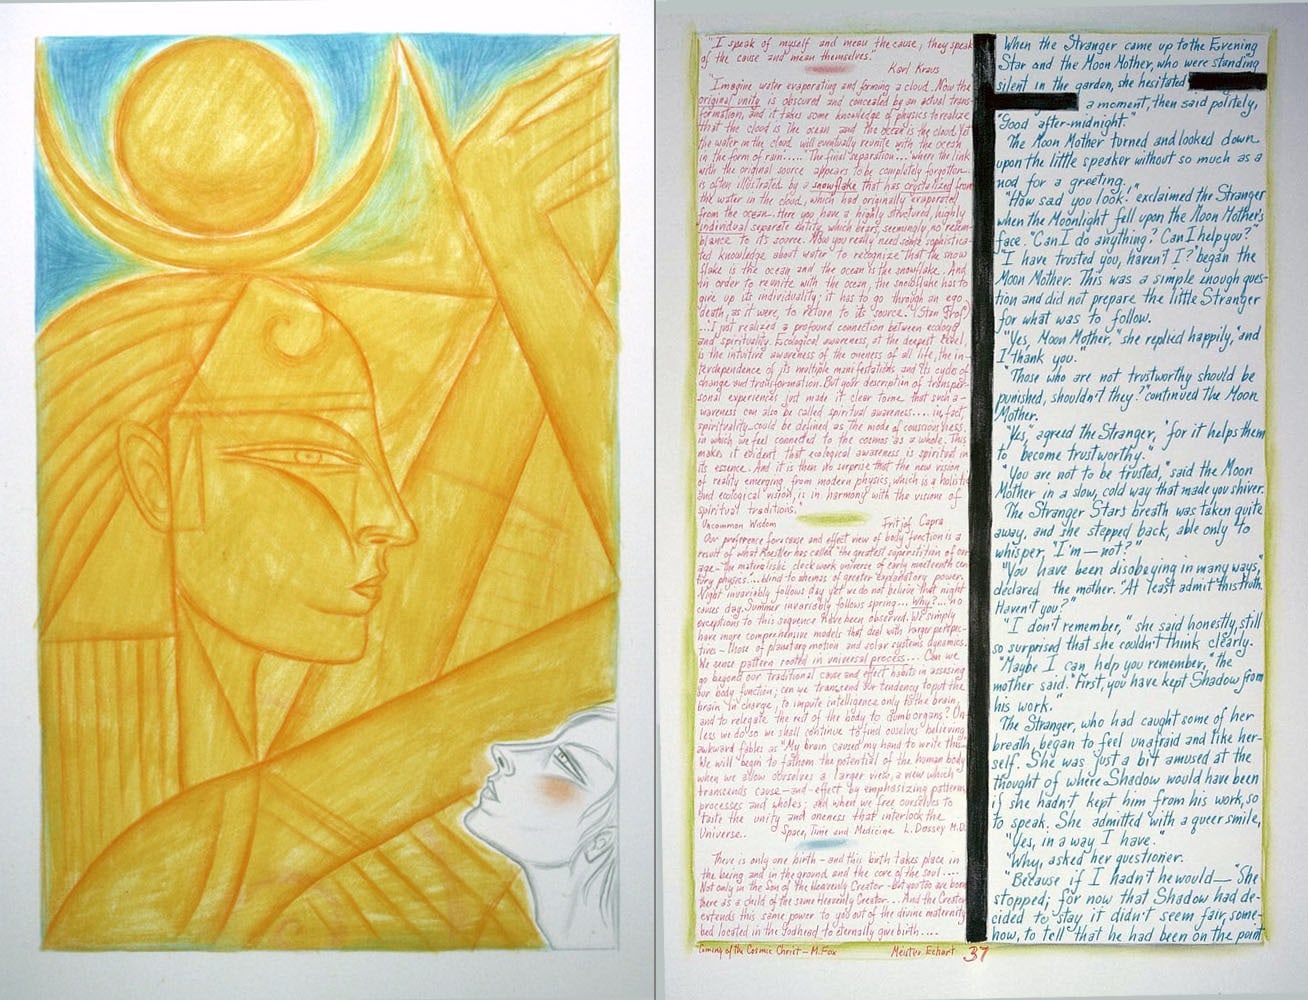 "I speak of myself and mean the cause, they speak
of the cause and mean themselves."
Karl Kraus
"Imagine water evaporating and forming a cloud. Now the
original unity is obscured and concealed by an actual trans-
formation, and it takes some knowledge of physics to realize
that the cloud is the ocean and the ocean is the cloud. Yet
the water in the cloud will eventually reunite with the ocean
in the form of rain..... "The final separation... where the link
with the original source appears to be completely forgotten.
is often illustrated by a snowflake that has crystalized from
the water in the cloud, which had originally evaporated
from the ocean. Here you have a highly structured, highly
individual separate entity, which bears, seemingly, no resem-
blance to its source. Now you really need some sophistica-
ted knowledge about water to recognize that the snow
flake is the ocean and the ocean is the snowflake. And
in order to reunite with the ocean, the snowflake has to
give up its individuality; it has to go through an ego
death, as it were, to return to its source. (Stan Grof)
...I just realized a profound connection between ecology
and spirituality. Ecological awareness, at the deepest level,
is the intuitive awareness of the oneness of all life, the in-
terdependence of its multiple manifestations and its cycles of
change and transformation. But your description of transper-
sonal experiences just made it clear to me that such a-
wareness can also be called spiritual awareness.... in fact,
spirituality could be defined as the mode of consciousness.
in which we feel connected to the cosmos as a whole. This
makes it evident that ecological awareness is spiritual in
its essence. And it is then no surprise that the new vision
of reality emerging from modern physics, which is a holistic
and ecological vision, is in harmony with the visions of
spiritual traditions."
Uncommon Wisdom Fritjof Capra
Our preference for cause and effect view of body function is a
result of what Koestler has called "the greatest superstition of our
age - the materialistic clockwork universe of early nineteenth cen
tury physics.... blind to schemas of greater explanatory power.
Night invariably follows day yet we do not believe that night
causes day. Summer invariably follows spring... Why?... no
exceptions to this sequence have been observed. We simply
have more comprehensive models that deal with larger perspec-
tives - those of planetary motion and solar systems dynamics.
We sense pattern rooted in universal process.... Can we
go beyond our traditional cause and effect habits in assessing
our body function; can we transcend our tendency to put the
brain in charge, to impute intelligence only to the brain,
and to relegate the rest of the body to dumb organs? Un-
less we do so we shall continue to find ourselves believing
awkward fables as "My brain caused my hand to write this...
We will begin to fathom the potential of the human body
when we allow ourselves a larger view, a view which
transcends cause-and-effect by emphasizing patterns,
processes and wholes; and when we free ourselves to
taste the unity and oneness that interlock the
Universe.. Space, Time and Medicine L. Dossey M.D.
There is only one birth - and this birth takes place in
the being and in the ground and the core of the soul....
Not only in the Son of the Heavenly Creator - but you too are born
there as a child of the same Heavenly Creator... And the Creator
extends this same power to you out of the divine maternity
bed located in the Godhead to eternally give birth....
Coming of the Cosmic Christ - M. Fox Meister Echart 37
When the Stranger came up to the Evening
Star and the Moon Mother, who were standing
silent in the garden, she hesitated
a moment, then said politely,
"Good after-midnight."
The Moon Mother turned and looked down
upon the little speaker without so much as a
nod for a greeting.
"How sad you look!" exclaimed the Stranger
when the Moonlight fell upon the Moon Mother's
face. "Can I do anything? Can I help you?"
"I have trusted you, haven't I?" began the
Moon Mother. This was a simple enough ques-
tion and did not prepare the little Stranger
for what was to follow.
"Yes, Moon Mother," she replied happily, "and
I thank you."
"Those who are not trustworthy should be
punished, shouldn't they?" continued the Moon
Mother.
"Yes," agreed the Stranger, "for it helps them
to become trustworthy."
"You are not to be trusted," said the Moon
Mother in a slow, cold way that made you shiver.
The Stranger Star's breath was taken quite
away, and she stepped back, able only to
whisper, "I'm — not?"
"You have been disobeying in many ways,"
declared the mother. "At least admit this truth.
Haven't you?"
"I don't remember," she said honestly, still
so surprised that she couldn't think clearly.
"Maybe I can help you remember," the
mother said. "First, you have kept Shadow from
his work."
The Stranger, who had caught some of her
breath, began to feel unafraid and like her-
self. She was just a bit amused at the
thought of where Shadow would have been
if she hadn't kept him from his work, so
to speak. She admitted with a queer smile,
"Yes, in a way I have."
"Why, asked her questioner.
"Because if I hadn't he would — "She
stopped; for now that Shadow had de-
cided to stay it didn't seem fair, some-
how, to tell that he had been on the point